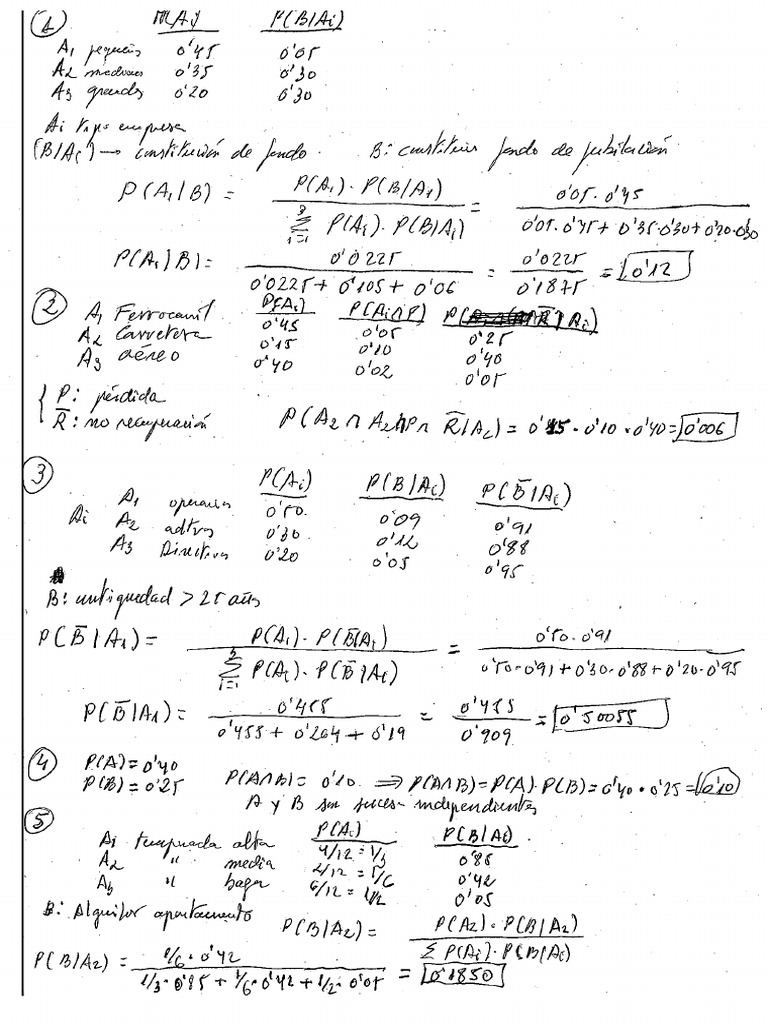 ① P(Ai) P(B/Ai)
A1 pequeñas 0'45 0'05
A2 medianas 0'35 0'30
A3 grandes 0'20 0'30
Ai tipo empresa
(B/Ai) → constitución de fondo. B: constituir fondo de jubilación
P(A1/B) = P(A1)·P(B/A1) / Σ i=1 3 P(Ai)·P(B/Ai) = 0'05·0'45 / 0'05·0'45 + 0'35·0'30 + 0'20·0'30
P(A1/B) = 0'0225 / 0'0225 + 0'105 + 0'06 = 0'0225 / 0'1875 = 0'12
② P(Ai) P(Ai∩P) P( R̄/Ai)
A1 Ferrocarril 0'45 0'05 0'25
A2 Carretera 0'15 0'10 0'40
A3 aéreo 0'40 0'02 0'05
P: pérdida
R̄: no recuperación P(A2∩A2∩P∩R̄/A2) = 0'15·0'10·0'40 = 0'006
③ P(Ai) P(B/Ai) P(B̄/Ai)
Ai A1 operarios 0'50 0'09 0'91
A2 adtvos 0'30 0'12 0'88
A3 Directivos 0'20 0'05 0'95
B: antiguedad > 25 años
P(B̄/A1) = P(Ai)·P(B̄/Ai) / Σ i=1 3 P(Ai)·P(B̄/Ai) = 0'50·0'91 / 0'50·0'91 + 0'30·0'88 + 0'20·0'95
P(B̄/A1) = 0'455 / 0'455 + 0'264 + 0'19 = 0'455 / 0'909 = 0'50055
④ P(A) = 0'40
P(B) = 0'25 P(A∩B) = 0'10 ⇒ P(A∩B) = P(A)·P(B) = 0'40·0'25 = 0'10
A y B son sucesos independientes
⑤ P(Ai) P(B/Ai)
Ai temporada alta 4/12 = 1/3 0'85
A2 " media 2/12 = 1/6 0'42
A3 " baja 6/12 = 1/2 0'05
B: Alquilar apartamento P(B/A2) = P(A2)·P(B/A2) / Σ P(Ai)·P(B/Ai)
P(B/A2) = 1/6·0'42 / 1/3·0'85 + 1/6·0'42 + 1/2·0'05 = 0'1850